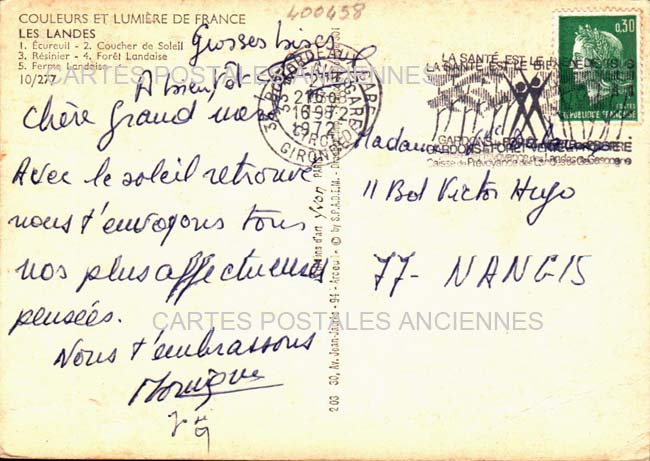 COULEURS ET LUMIÈRE DE FRANCE
LES LANDES
1. Écureuil - 2. Coucher de Soleil
3. Résinier - 4. Forêt Landaise
5. Ferme Landaise
10/277
400458
Grosses bises
A bientôt
Chère grand mère
Avec le soleil retrouvé
nous t'envoyons tous
nos plus affectueuses
pensées.
Nous t'embrassons
Monique
BORDEAUX GARE
GIRONDE
0,30
POSTES
REPUBLIQUE FRANCAISE
LA SANTÉ EST LE BIEN
Caisse de Prévoyance des Landes de Gascogne
Madame
11 Bd Victor Hugo
77 - NANGIS
yvon
2 03 30, Av. Jean-Jaurès - 94 - Arcueil - © by S.P.A.D.E.M.
CARTES POSTALES ANCIENNES
CARTES POSTALES ANCIENNES